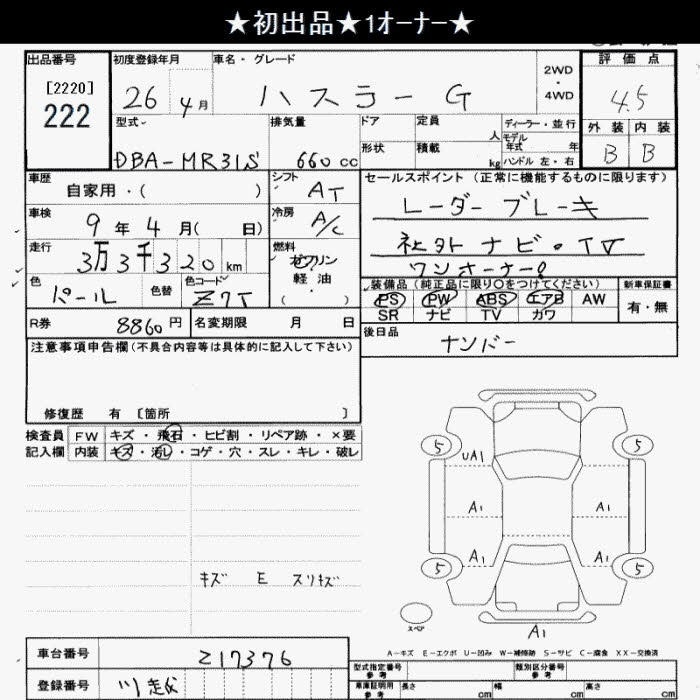 ★初出品★1ｵｰﾅｰ★
出品番号 初度登録年月 車名・グレード 評価点
[2220]
222
26 4月 ハスラー G 2WD・4WD 4.5
外装 内装
B B
型式 排気量 ドア 定員 人 ディーラー・並行
モデル年式 年
DBA-MR31S 660cc 形状 積載 kg ハンドル 左・右
車歴 自家用・( ) シフト AT
セールスポイント（正常に機能するものに限ります）
レーダーブレーキ
車検 9年4月( 日) 冷房 A/C
社外ナビ・TV
走行 3万3千320km 燃料 ガソリン
軽油
( )
ワンオーナー
色 パール 色替 色コード Z7T
装備品（純正品に限り○をつけてください） 新車保証書
PS PW ABS エアB AW 有・無
SR ナビ TV カワ
R券 8860円 名変期限 月 日
後日品 ナンバー
注意事項申告欄（不具合内容等は具体的に記入して下さい）
修復歴 有 [箇所 ]
検査員 FW キズ・飛石・ヒビ割・リペア跡・×要
記入欄 内装 キズ・汚レ・コゲ・穴・スレ・キレ・破レ
5 UA1 5
A1 A1
A1 A1
5 5
キズ E スリキズ
スペア
A1
A-キズ E-エクボ U-凹み W-補修跡 S-サビ C-腐食 XX-交換済
車台番号 Z17376
型式指定番号 参考 類別区分番号 参考
登録番号 川越
車庫証明用 参考 長さ cm 幅 cm 高さ cm